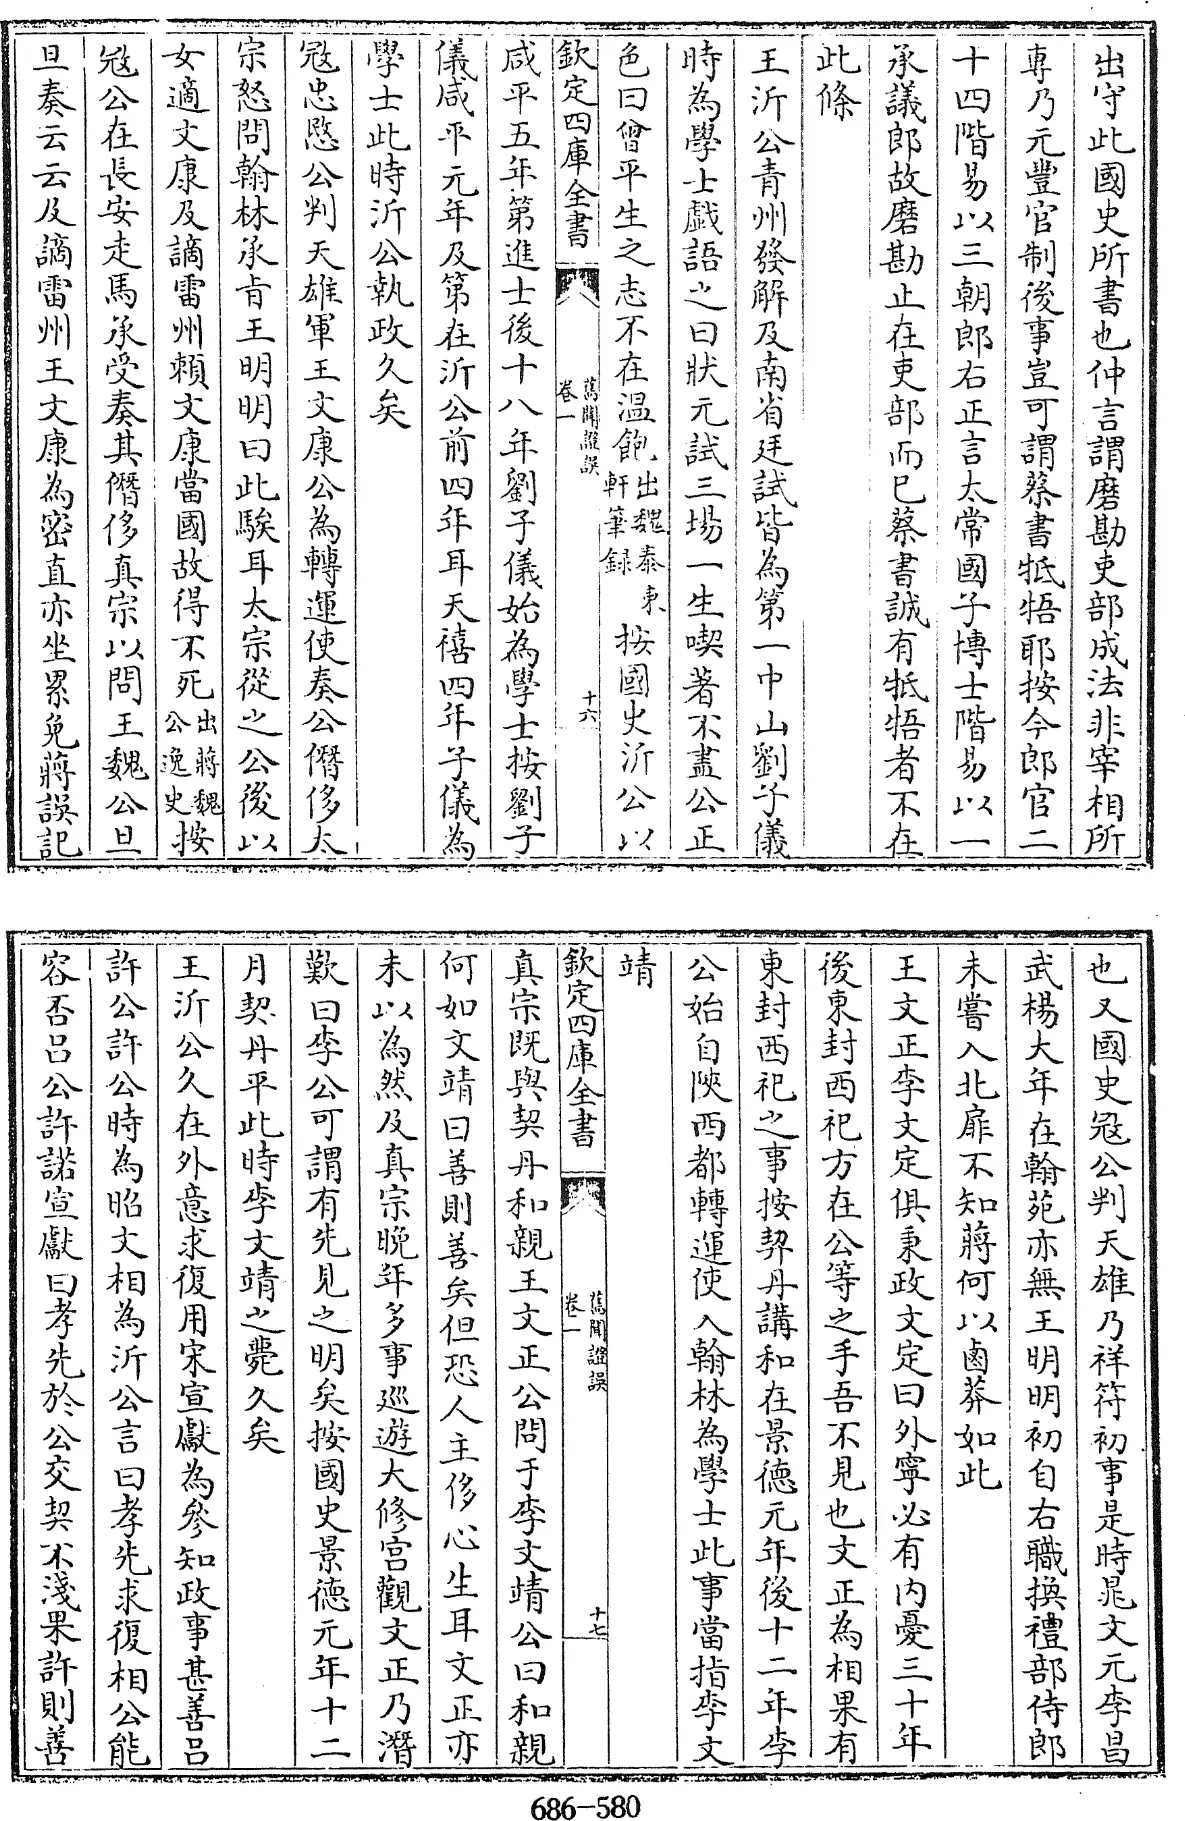 出守此國史所書也仲言謂磨勘吏部成法非宰相所
專乃元豐官制後事豈可謂蔡書牴牾耶按今郎官二
十四階易以三朝郎右正言太常國子博士階易以一
承議郎故磨勘止在吏部而已蔡書誠有牴牾者不在
此條
王沂公青州發解及南省廷試皆為第一中山劉子儀
時為學士戲語之曰狀元試三場一生喫著不盡公正
色曰曾平生之志不在溫飽出魏泰東軒筆録按國史沂公以
欽定四庫全書 舊聞證誤 卷一 十六
咸平五年第進士後十八年劉子儀始為學士按劉子
儀咸平元年及第在沂公前四年耳天禧四年子儀為
學士此時沂公執政久矣
寇忠愍公判天雄軍王文康公為轉運使奏公僭侈太
宗怒問翰林承旨王明明曰此騃耳太宗從之公後以
女適文康及謫雷州賴文康當國故得不死出蔣魏公逸史按
寇公在長安走馬承受奏其僭侈真宗以問王魏公旦
旦奏云云及謫雷州王文康為密直亦坐累免蔣誤記
也又國史寇公判天雄乃祥符初事是時晁文元李昌
武楊大年在翰苑亦無王明明初自右職換禮部侍郎
未嘗入北扉不知蔣何以鹵莽如此
王文正李文定俱秉政文定曰外寧必有内憂三十年
後東封西祀方在公等之手吾不見也文正為相果有
東封西祀之事按契丹講和在景德元年後十二年李
公始自陝西都轉運使入翰林為學士此事當指李文
靖
欽定四庫全書 舊聞證誤 卷一 十七
真宗既與契丹和親王文正公問于李文靖公曰和親
何如文靖曰善則善矣但恐人主侈心生耳文正亦
未以為然及真宗晩年多事巡遊大修宫觀文正乃潛
歎曰李公可謂有先見之明矣按國史景德元年十二
月契丹平此時李文靖之薨久矣
王沂公久在外意求復用宋宣獻為參知政事甚善吕
許公許公時為昭文相為沂公言曰孝先求復相公能
容否吕公許諾宣獻曰孝先於公交契不淺果許則善
686-580